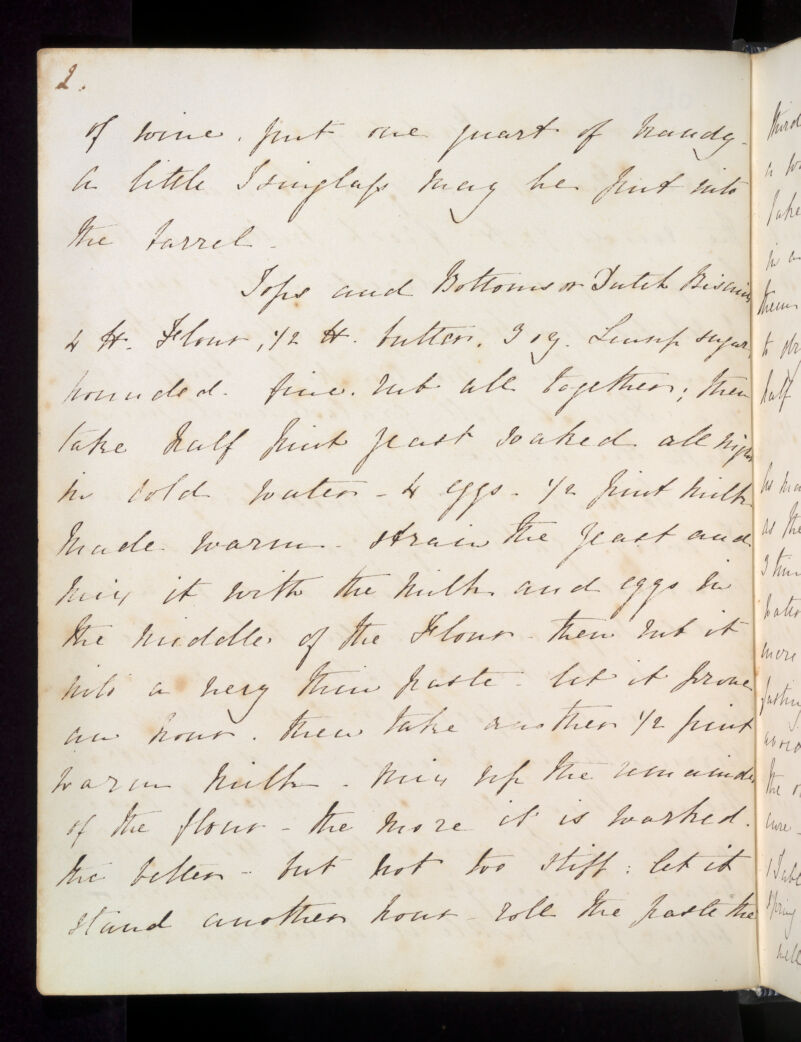 2.
of wine. put one quart of Brandy.
A little Isinglass may be put into
the barrel.
Tops and Bottoms or Dutch Biscuits
4 lb. Flour, 1/2 lb. butter. 3 oz. Lump sugar,
pounded. fine. rub all together; then
take half pint yeast soaked all night
in cold water - 4 eggs - 1/2 pint milk
made warm. strain the yeast and
mix it with the milk and eggs in
the middle of the Flour - then rub it
into a very thin paste - let it prove
an hour. then take another 1/2 pint
warm milk. mix up the remainder
of the flour - the more it is worked.
the better - but not too stiff: let it
stand another hour - roll the paste the
third
a
take
in a
them
to
half
as the
water
more
the
cure -
spring